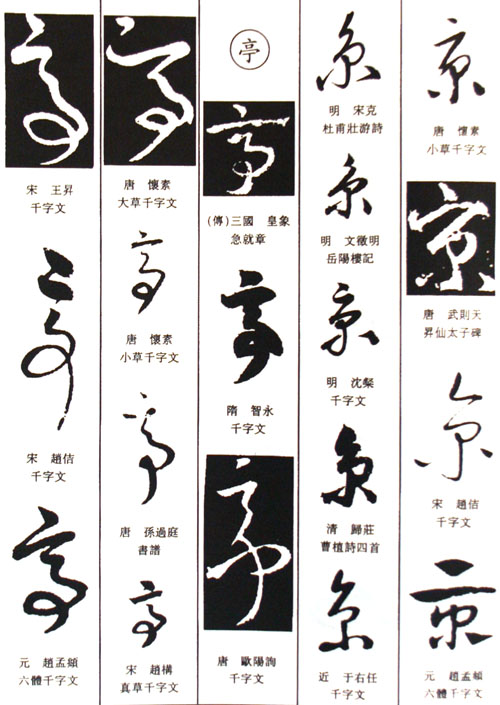 京
唐 懷素
小草千字文
京
唐 武則天
昇仙太子碑
京
宋 趙佶
千字文
京
元 趙孟頫
六體千字文
京
明 宋克
杜甫壯游詩
京
明 文徵明
岳陽樓記
京
明 沈粲
千字文
京
清 歸莊
曹植詩四首
京
近 于右任
千字文
亭
亭
(傳)三國 皇象
急就章
亭
隋 智永
千字文
亭
唐 歐陽詢
千字文
亭
唐 懷素
大草千字文
亭
唐 懷素
小草千字文
亭
唐 孫過庭
書譜
亭
宋 趙構
真草千字文
亭
宋 王昇
千字文
亭
宋 趙佶
千字文
亭
元 趙孟頫
六體千字文